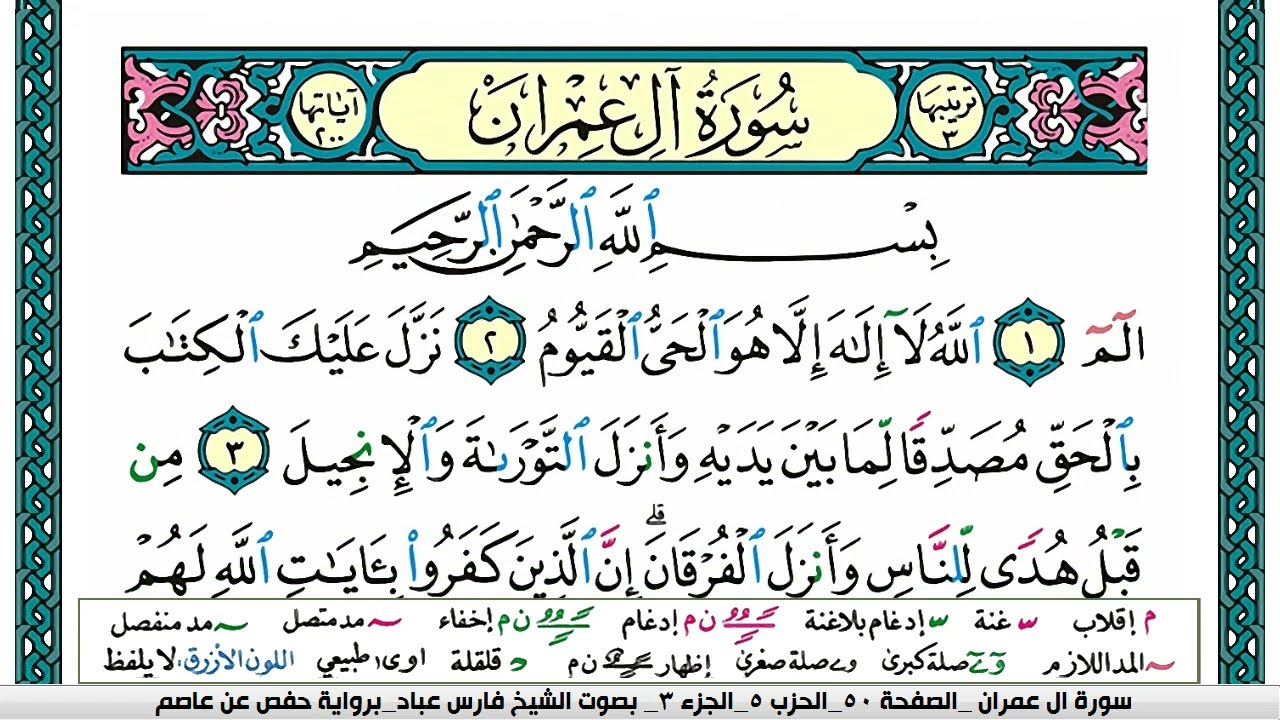 ترتيبها ٣ سُورَةُ آلِ عِمْرَانَ آيَاتها ٢٠٠
بِسْمِ ٱللَّهِ ٱلرَّحْمَٰنِ ٱلرَّحِيمِ
الٓمٓ ١ ٱللَّهُ لَآ إِلَٰهَ إِلَّا هُوَ ٱلْحَىُّ ٱلْقَيُّومُ ٢ نَزَّلَ عَلَيْكَ ٱلْكِتَٰبَ
بِٱلْحَقِّ مُصَدِّقًا لِّمَا بَيْنَ يَدَيْهِ وَأَنزَلَ ٱلتَّوْرَىٰةَ وَٱلْإِنجِيلَ ٣ مِن
قَبْلُ هُدًى لِّلنَّاسِ وَأَنزَلَ ٱلْفُرْقَانَ ۗ إِنَّ ٱلَّذِينَ كَفَرُوا۟ بِـَٔايَٰتِ ٱللَّهِ لَهُمْ
م إقلاب غنة إدغام بلاغنة ن م إدغام ن م إخفاء مد متصل مد منفصل
المد اللازم صلة كبرى وے صلة صغرى إظهار ن م قلقلة اوى طبيعي اللون الأزرق: لا يلفظ
سورة ال عمران _الصفحة ٥٠_الحزب ٥_الجزء ٣_ بصوت الشيخ فارس عباد_برواية حفص عن عاصم